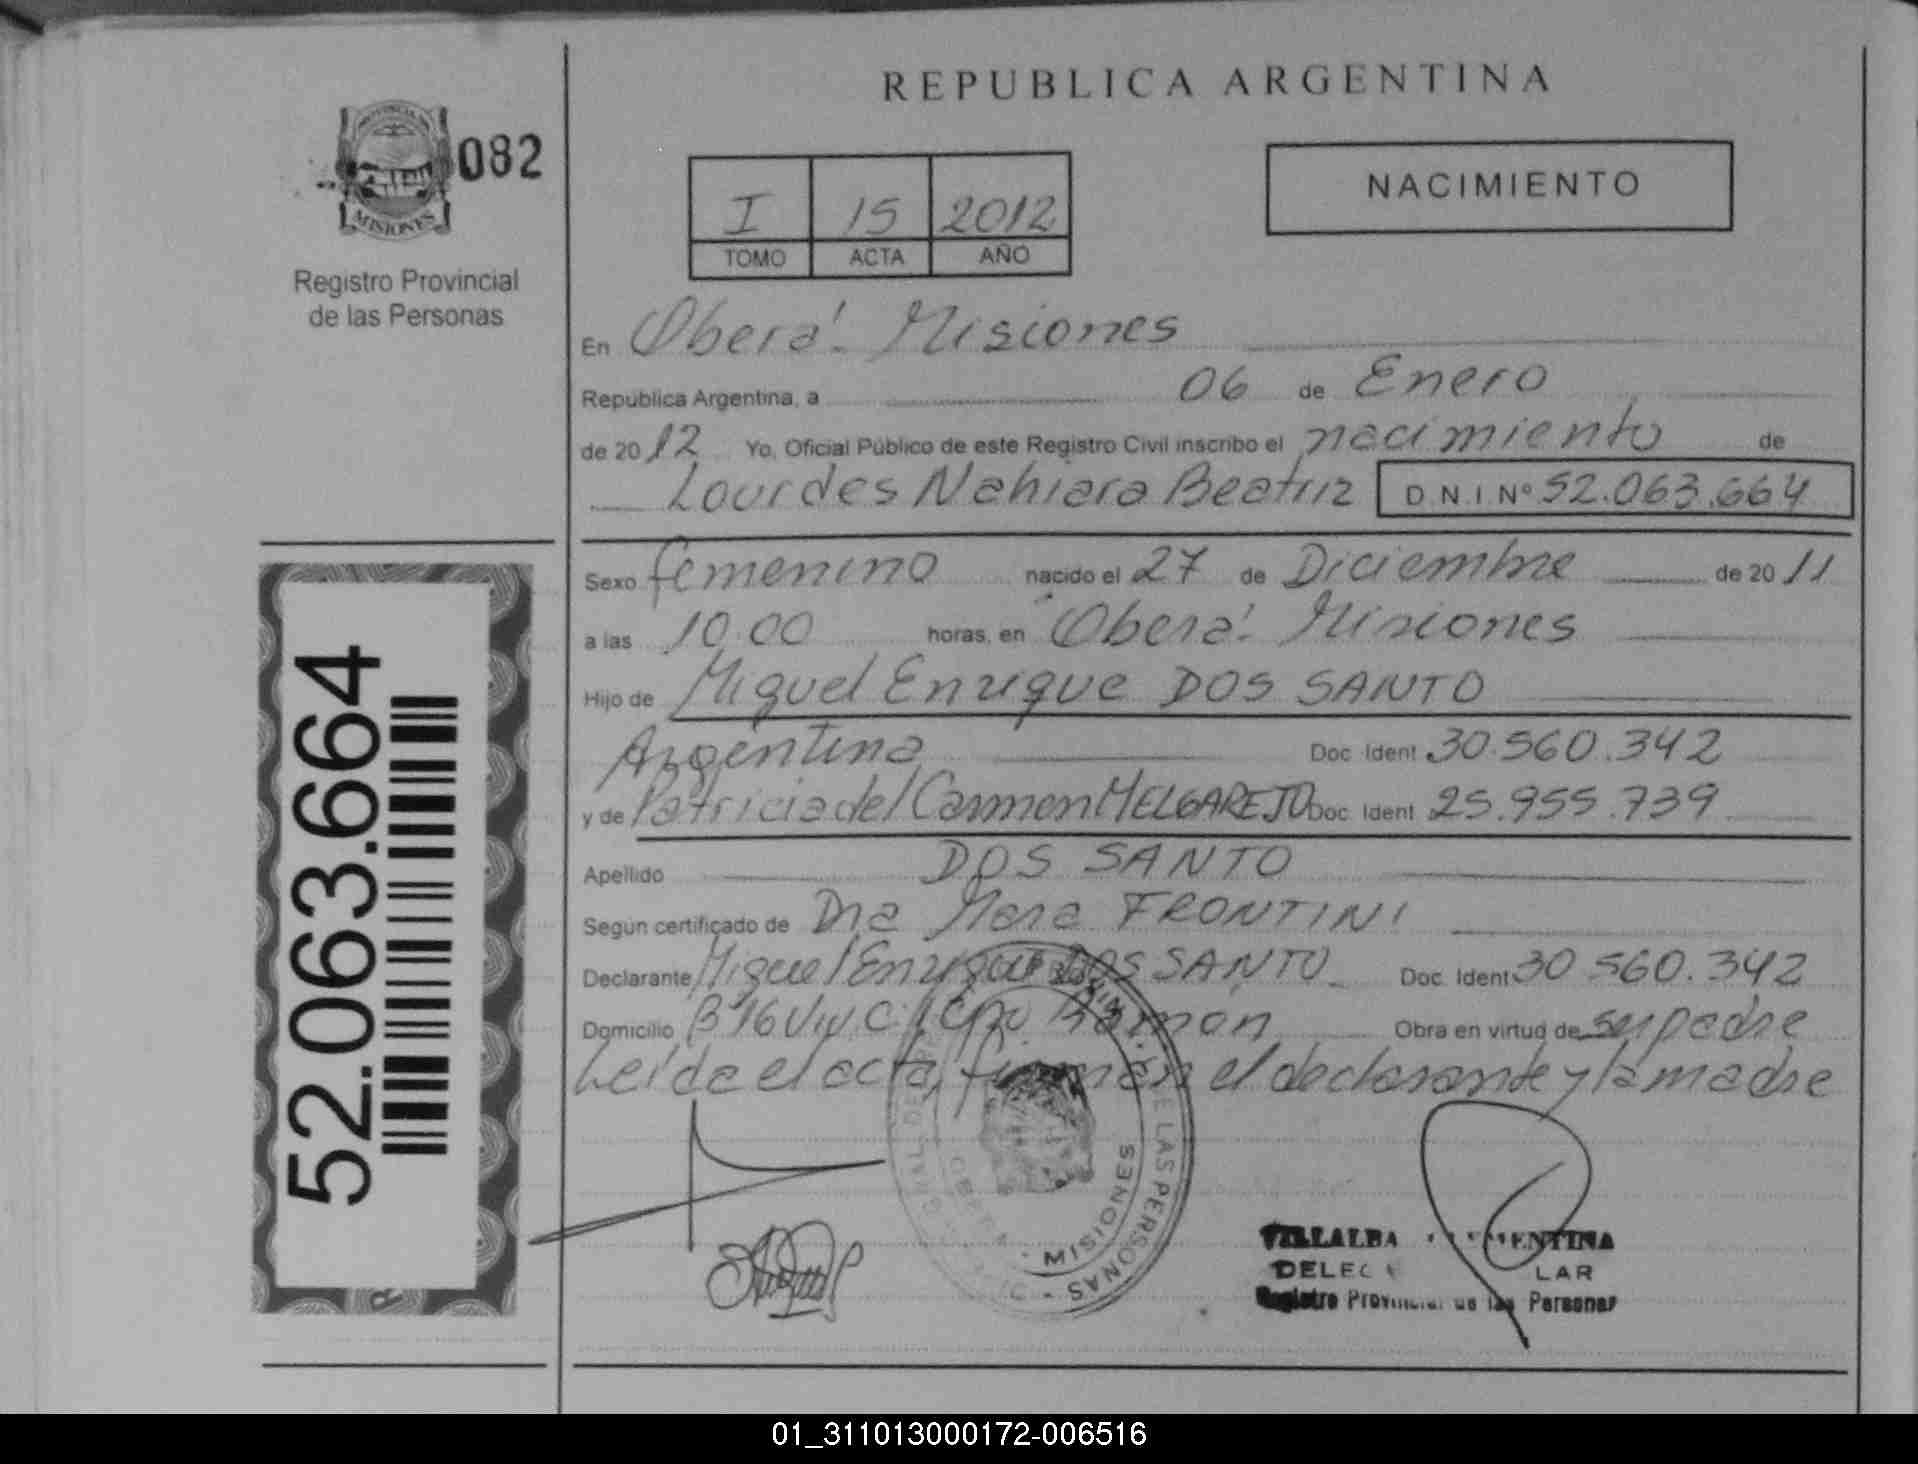 REPUBLICA ARGENTINA
PROVINCIA DE
MISIONES
082
Registro Provincial
de las Personas
I 15 2012
TOMO ACTA AÑO
NACIMIENTO
En Oberá. Misiones
Republica Argentina, a 06 de Enero
de 2012 Yo, Oficial Público de este Registro Civil inscribo el nacimiento de
Lourdes Nahiara Beatriz D.N.I. Nº 52.063.664
Sexo femenino nacido el 27 de Diciembre de 2011
a las 10.00 horas, en Oberá. Misiones
Hijo de Miguel Enrique DOS SANTO
Argentina Doc. Ident 30.560.342
y de Patricia del Carmen MELGAREJO Doc. Ident 25.955.739
Apellido DOS SANTO
Según certificado de Dra FRONTINI
Declarante Miguel Enrique DOS SANTO Doc. Ident 30 560.342
Domicilio Bº 16 Viv Ramón Obra en virtud de ser padre
Leída el acta, firman el declarante y la madre
52.063.664
DE LAS PERSONAS
MISIONES
VILLALBA
Registro Provincial de las Personas
01_311013000172-006516